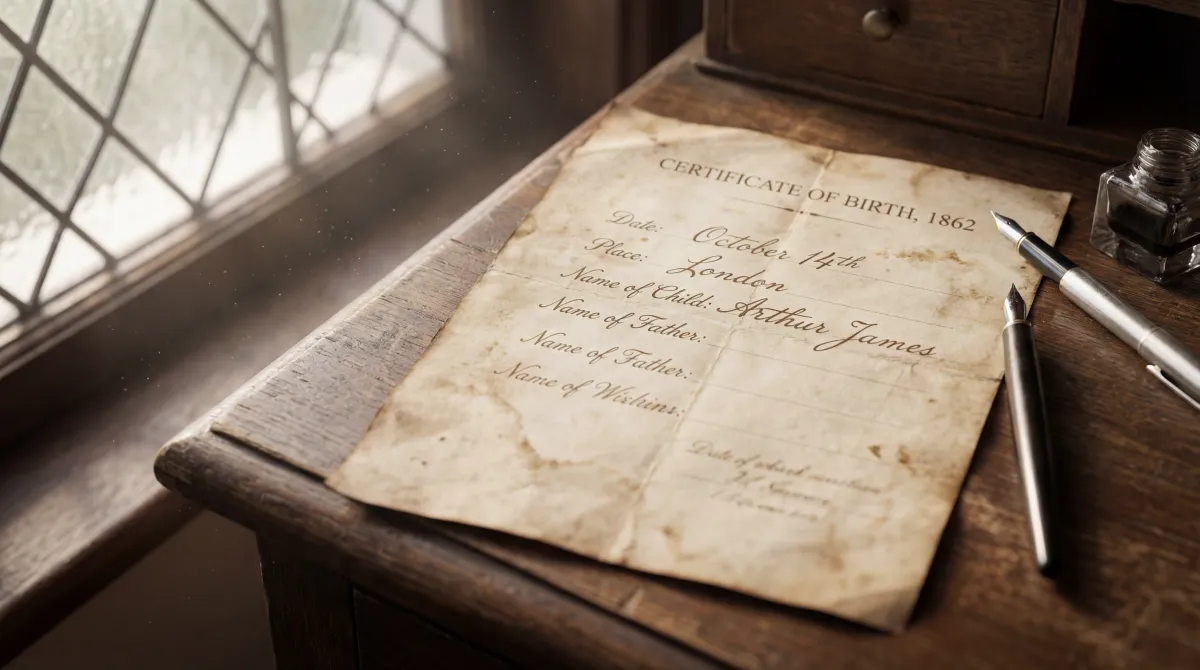 CERTIFICATE OF BIRTH, 1862
Date: October 14th
Place: London
Name of Child: Arthur James
Name of Father:
Name of Father:
Name of Wishins:
Date of